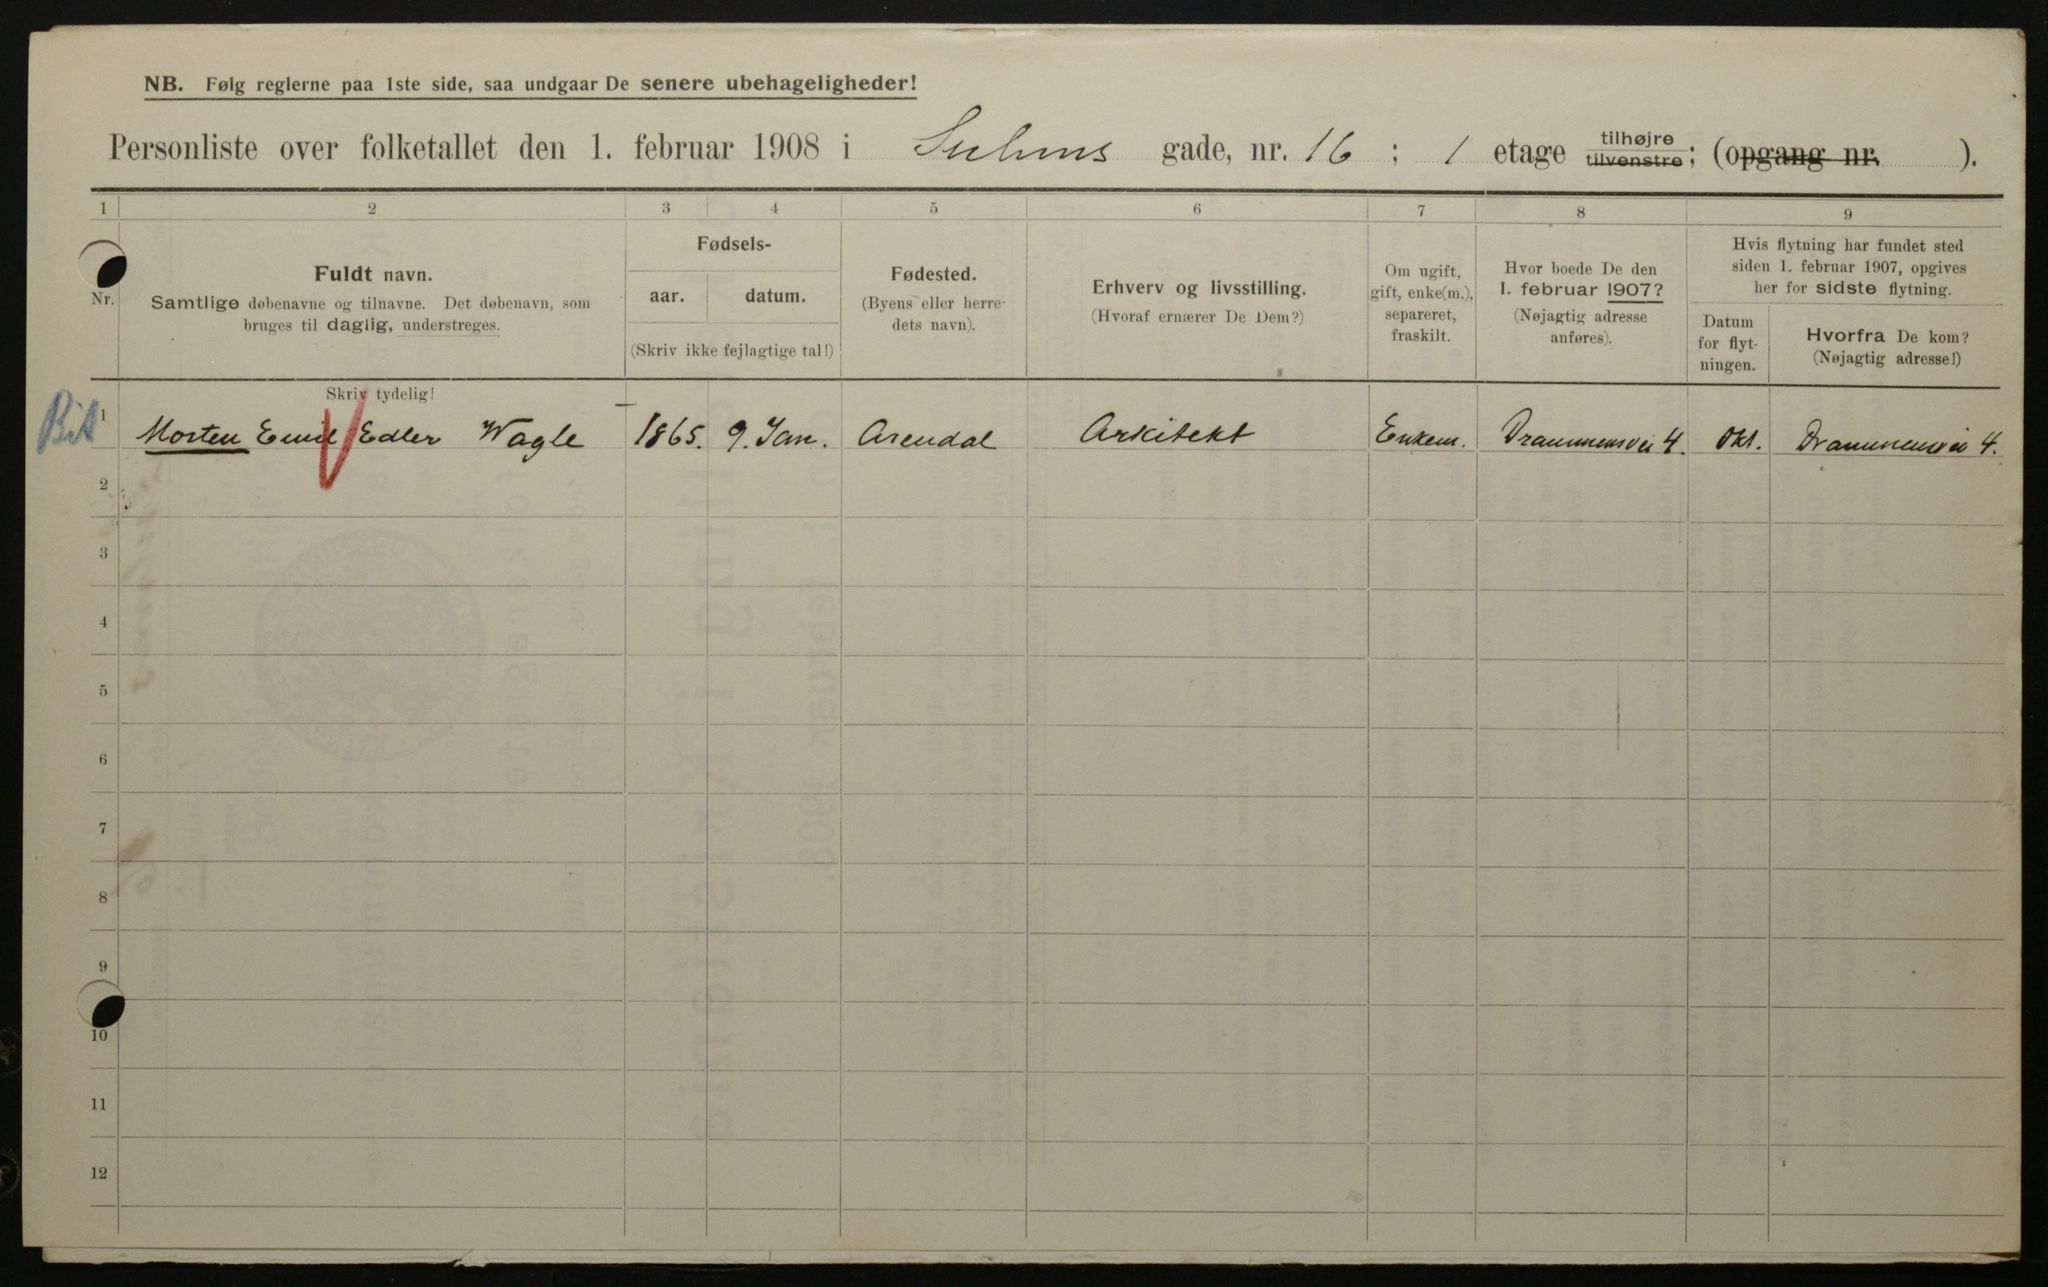 NB. Følg reglerne paa 1ste side, saa undgaar De senere ubehageligheder!
Personliste over folketallet den 1. februar 1908 i Suhms gade, nr. 16 ; 1 etage tilhøjre tilvenstre; (opgang nr. ).
1 2 3 4 5 6 7 8 9
Nr.
Fuldt navn.
Samtlige døbenavne og tilnavne. Det døbenavn, som
bruges til daglig, understreges.
Fødsels-
aar. datum.
(Skriv ikke fejlagtige tal!)
Fødested.
(Byens eller herre-
dets navn).
Erhverv og livsstilling.
(Hvoraf ernærer De Dem?)
Om ugift,
gift, enke(m.),
separeret,
fraskilt.
Hvor boede De den
1. februar 1907?
(Nøjagtig adresse
anføres).
Hvis flytning har fundet sted
siden 1. februar 1907, opgives
her for sidste flytning.
Datum
for flyt-
ningen.
Hvorfra De kom?
(Nøjagtig adresse!)
Skriv tydelig!
1 Morten Emil Edler Wagle 1865. 9. Jan. Arendal Arkitekt Enkem. Drammensvei 4. Okt. Drammensvei 4.
2
3
4
5
6
7
8
9
10
11
12